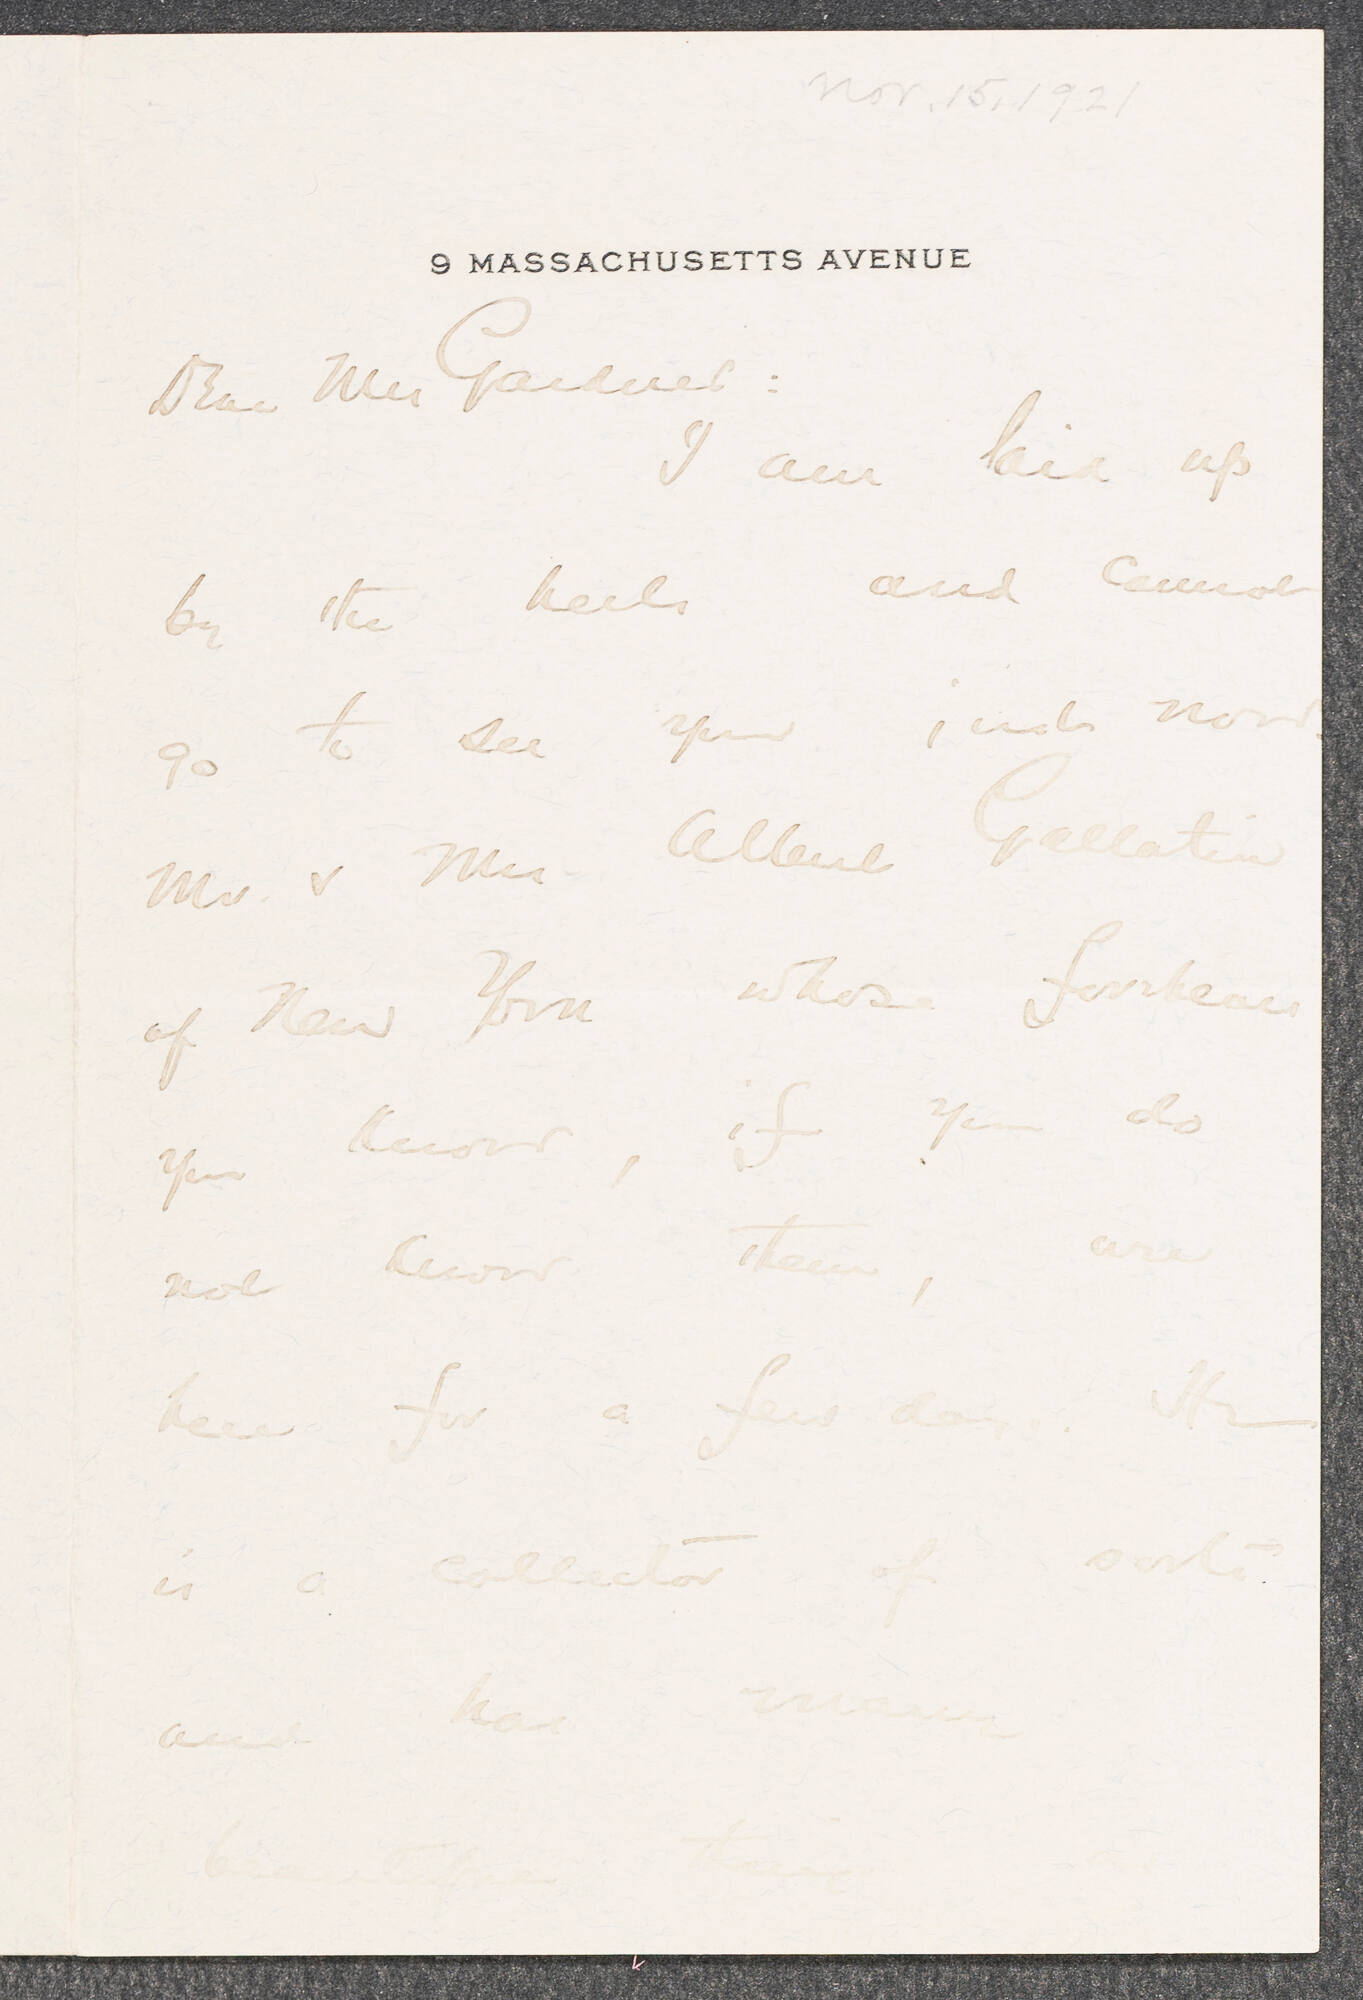 Nov. 15, 1921
9 MASSACHUSETTS AVENUE
Dear Mrs Gardner:
I am laid up
by the heels and cannot
go to see you just now.
Mr. & Mrs Albert Gallatin
of New York whose forebears
you know, if you do
not know them, are
here for a few days. He
is a collector of sorts
and has many
beautiful things